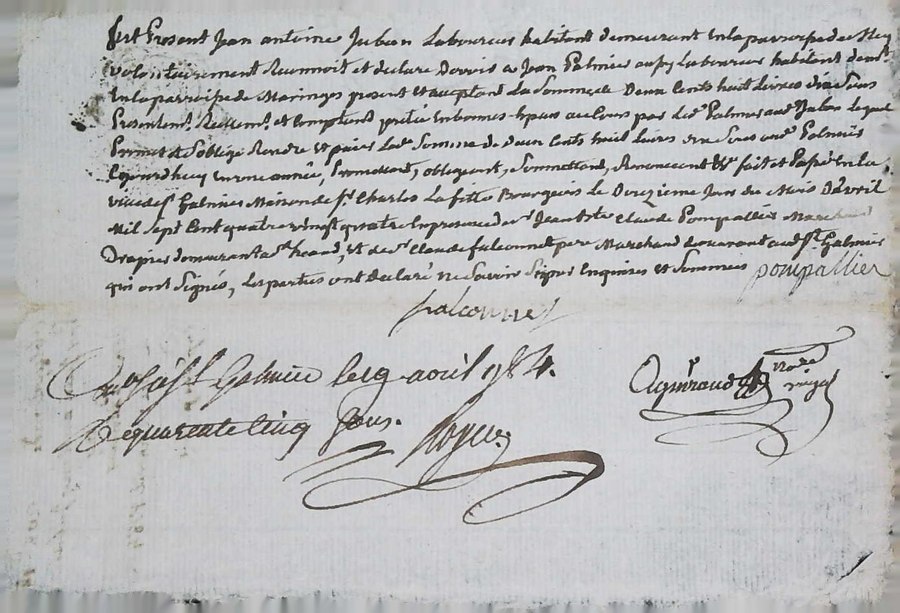 fut Present Jean antoine Julien Laboureur habitant demeurant En la parroipe de
volontairement Reconnoit et declare Devoir a Jean Palmier aupy Laboureur habitant dem.t
En la parroipe de Maringes present et acceptant La Somme de Deux Cents huit Livres dix Sous
Presentem.t et Comptant en bonnes Especes au Cours par led.t Palmier aud.t Julien Lequel
Promet et S'oblige Rendre et païer Lad. Somme de deux Cents huit Livres dix Sous aud.t Palmier
D'aujourd'huy en une année, Promettant, obligeant, Soumettant, Renonceant &c fait et Papé En la
ville de S.t Galmier Maison de S.r Charles La fitte Bourgeois le Douzieme Jour du Mois D'avril
Mil Sept Cent quatre vingt quatre En presence de s.r Jean B.te Claude Pompallier Marchand
Drapier demeurant a S.t heand, et de s.r Claude falconnet pere Marchand demeurant aud. S.t Galmier
qui ont Signés, Les parties ont declaré ne Savoir Signer Enquises et Sommées pompallier
falconnet
S.t Galmier le 19 avril 1784.
R quarente Cinq Sous. Royer
Agniraud No.re royal